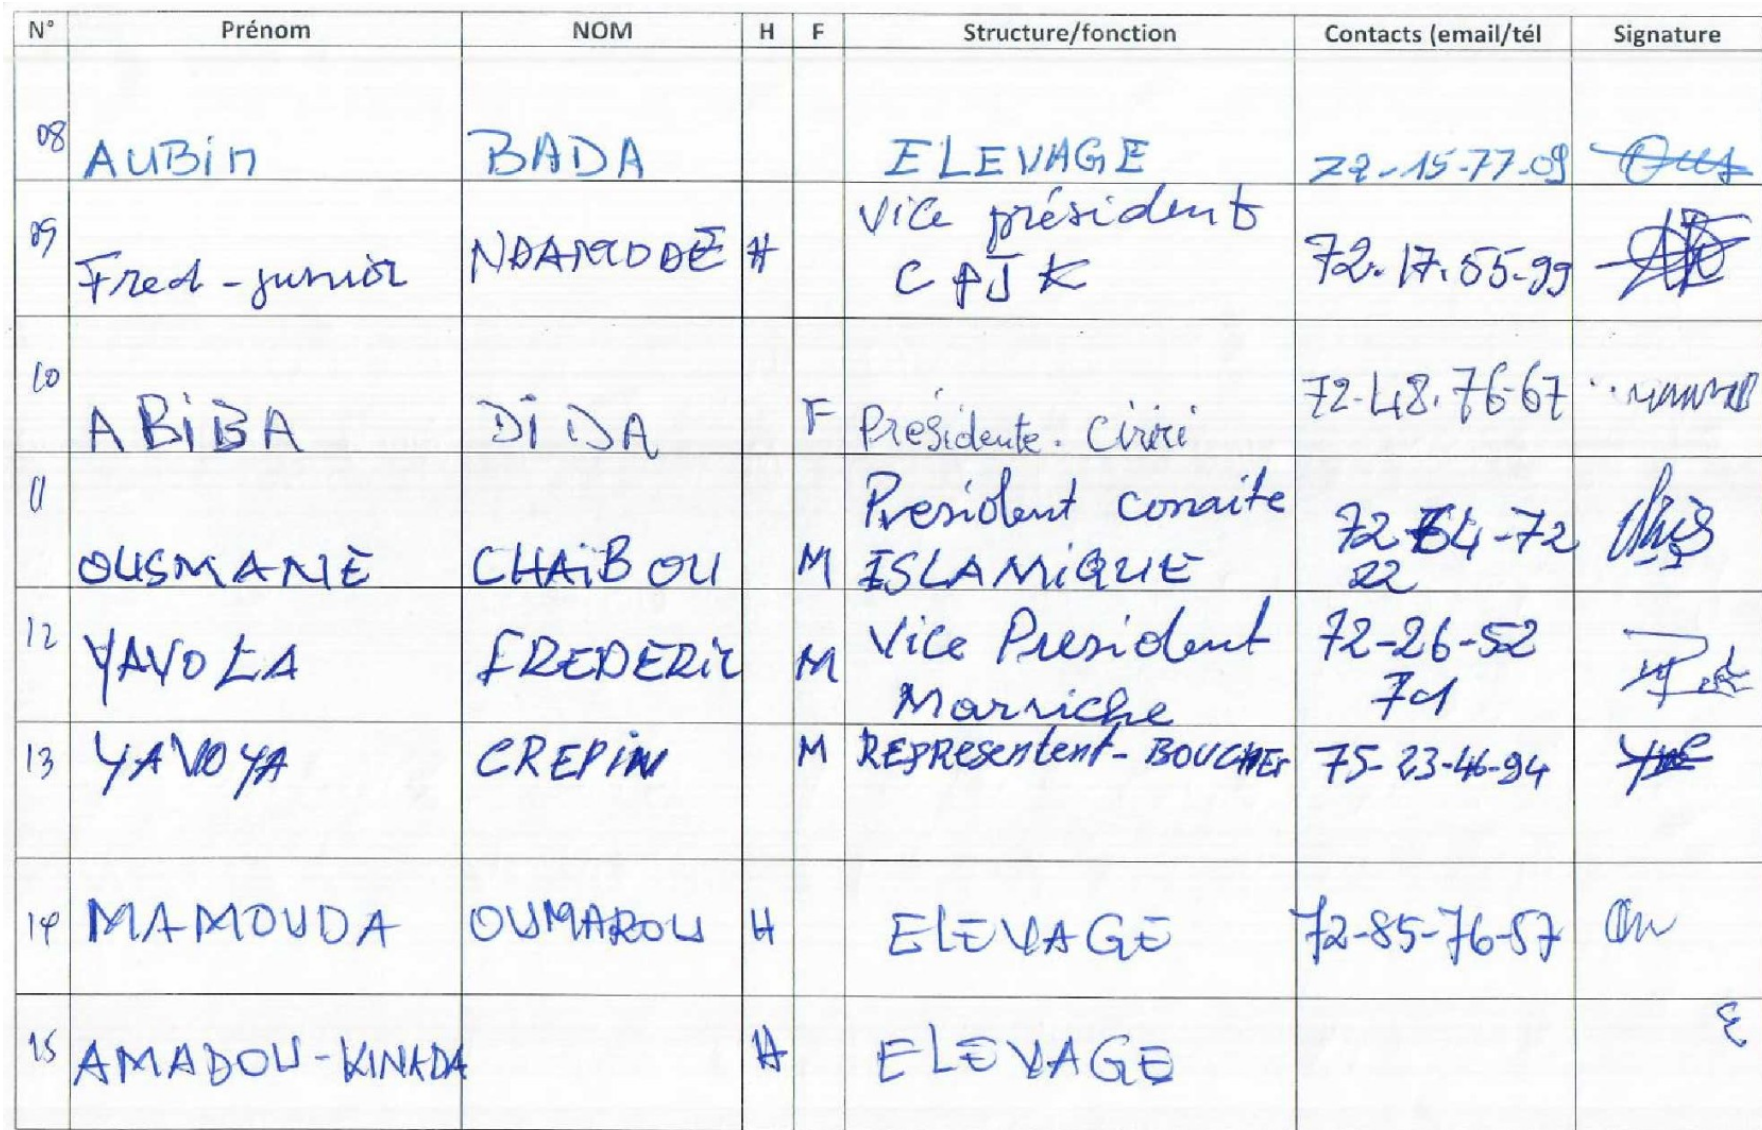 N° Prénom NOM H F Structure/fonction Contacts (email/tél Signature
08 AUBIN BADA ELEVAGE 72-15-77-09
09 Fred-junior H Vice président
CPJK 72.17.55-99
10 ABIBA DIDA F Présidente. Ciriri 72-48.76-67
11 OUSMANE CHAÏBOU M President comite
ISLAMIQUE 72-64-72
22
12 YAVOLA FREDERIC M Vice President 72-26-52
71
13 YAVOYA CREPIN M REPResentent-BOUCHER 75-23-46-94
14 MAMOUDA OUMAROU H ELEVAGE 72-85-76-57
15 AMADOU-KINADA H ELEVAGE